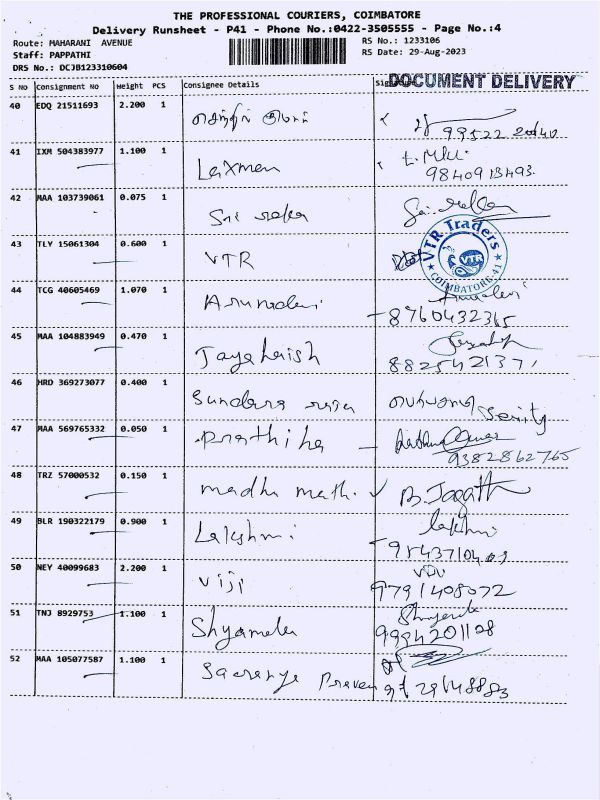 THE PROFESSIONAL COURIERS, COIMBATORE
Delivery Runsheet - P41 - Phone No.:0422-3505555 - Page No.:4
Route: MAHARANI AVENUE RS No.: 1233106
Staff: PAPPATHI RS Date: 29-Aug-2023
DRS No.: DCJB123310604
DOCUMENT DELIVERY
S No Consignment No Weight PCS Consignee Details
40 EDQ 21511693 2.200 1 செந்தில் குமார்
99522 20140
41 IXM 504383977 1.100 1 Laxman
9840913493
42 MAA 103739061 0.075 1 Sri
43 TLY 15061304 0.600 1 VTR
VTR Traders
VTR
COIMBATORE-41
44 TCG 40605469 1.070 1 Arunadevi
8760432365
45 MAA 104883949 0.470 1 Jayaharish
8825421371
46 HRD 369273077 0.400 1 Sundara raja
47 MAA 569765332 0.050 1 Prathiba
9382862765
48 TRZ 57000532 0.150 1 madhu mathi B. Jagath
49 BLR 190322179 0.900 1 Lakshmi
50 NEY 40099683 2.200 1 Viji
9791408072
51 TNJ 8929753 1.100 1 Shyamala
9994201108
52 MAA 105077587 1.100 1 Praveen